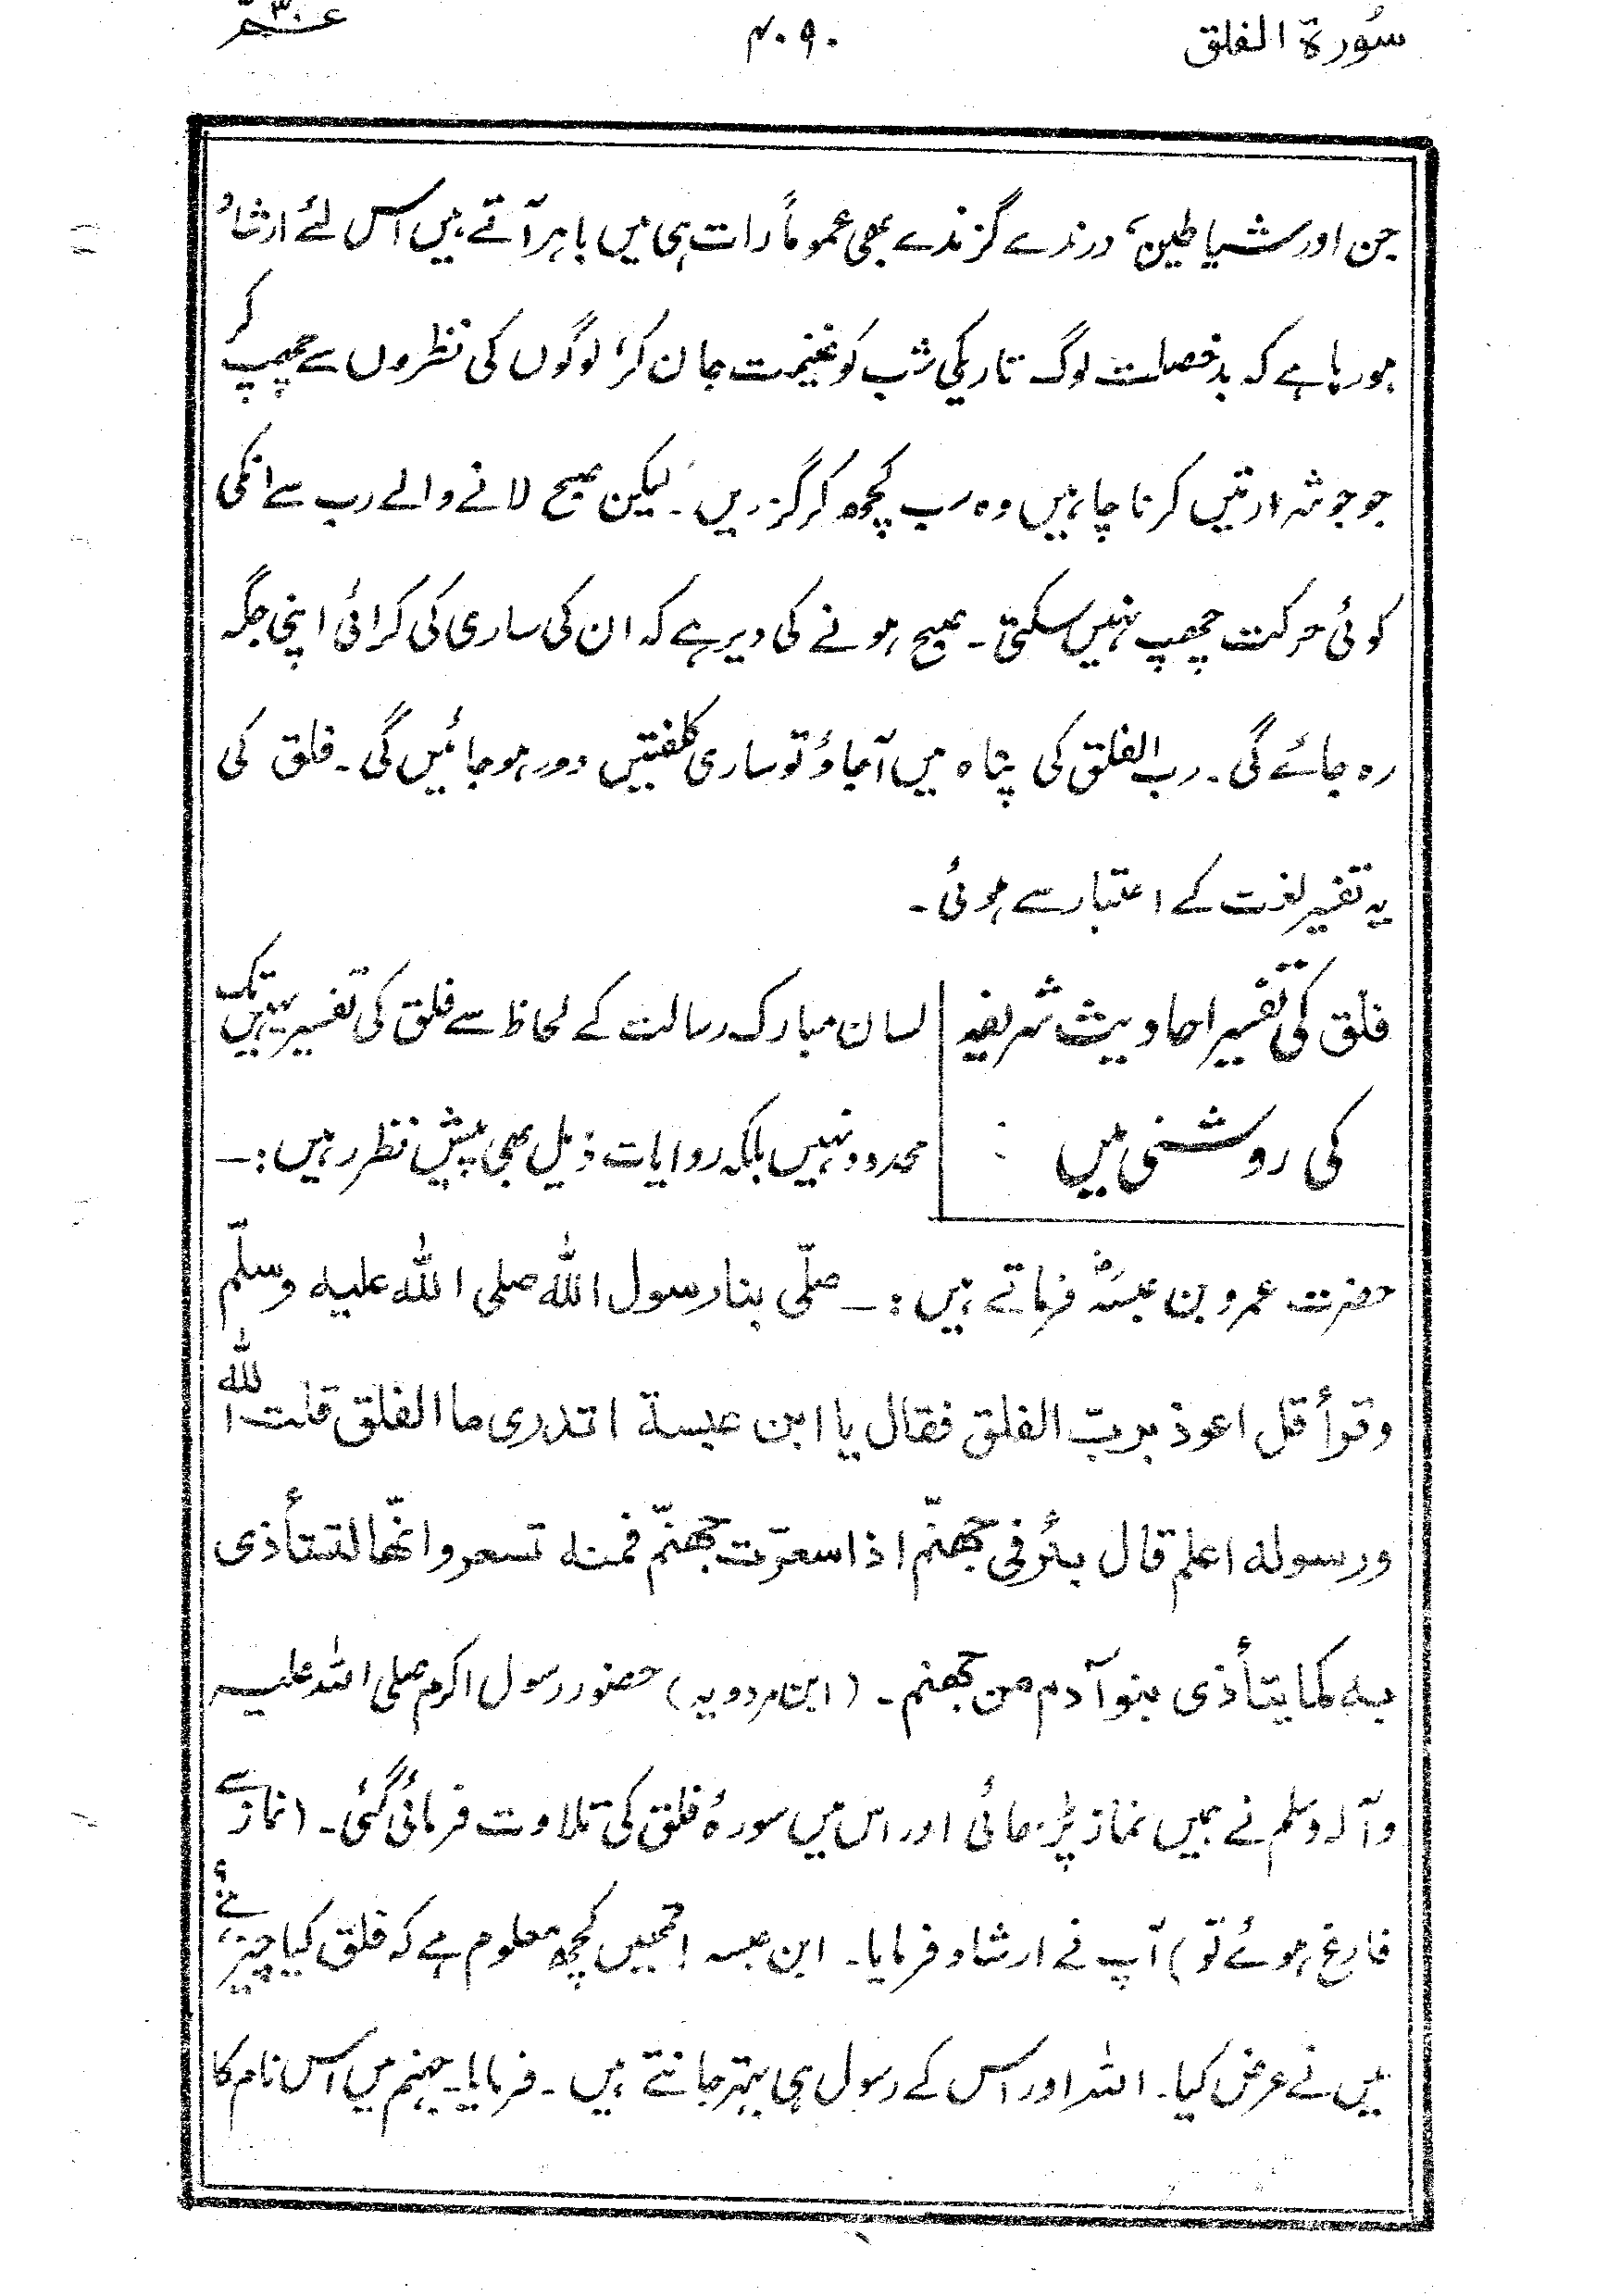 سُورة الفلق
۴۰۹۰
عـمّ ۳۰
جن اور شیاطین، درندے گزندے بھی عموماً رات ہی میں باہر آتے ہیں اس لئے ارشاد
ہو رہا ہے کہ بدخصلت لوگ تاریکی شب کو غنیمت جان کر، لوگوں کی نظروں سے چھپ کر
جو جو شرارتیں کرنا چاہیں وہ سب کچھ کر گزریں۔ لیکن صبح لانے والے رب سے انکی
کوئی حرکت چھپ نہیں سکتی۔ صبح ہونے کی دیر ہے کہ ان کی ساری کی کرائی اپنی جگہ
رہ جائے گی۔ رب الفلق کی پناہ میں آجاؤ تو ساری کلفتیں دور ہوجائیں گی۔ فلق کی
یہ تفسیر لغت کے اعتبار سے ہوئی۔
فلق کی تفسیر احادیث شریفہ
کی روشنی میں :
لسان مبارک رسالت کے لحاظ سے فلق کی تفسیر یہیں تک
محدود نہیں بلکہ روایات ذیل بھی پیش نظر رہیں :۔
حضرت عمرو بن عبسہؓ فرماتے ہیں :۔ صلّی بنا رسول اللہ صلی اللہ علیہ وسلّم
وقرأ قل اعوذ بربّ الفلق فقال یا ابن عبسة اتدری ما الفلق قلت اللہ
ورسولہ اعلم قال بئر فی جھنّم اذا سعرّت جھنّم فمنہ تسعر وانّھا لتتأذی
بہ کما یتأذی بنو آدم من جھنم۔ (ابن مردویہ) حضور رسول اکرم صلی اللہ علیہ
وآلہ وسلم نے ہمیں نماز پڑھائی اور اس میں سورۂ فلق کی تلاوت فرمائی گئی۔ (نماز سے
فارغ ہوئے تو) آپ نے ارشاد فرمایا۔ ابن عبسہ! تمھیں کچھ معلوم ہے کہ فلق کیا چیز ہے،
میں نے عرض کیا۔ اللہ اور اس کے رسول ہی بہتر جانتے ہیں۔ فرمایا۔ جہنم میں اس نام کا